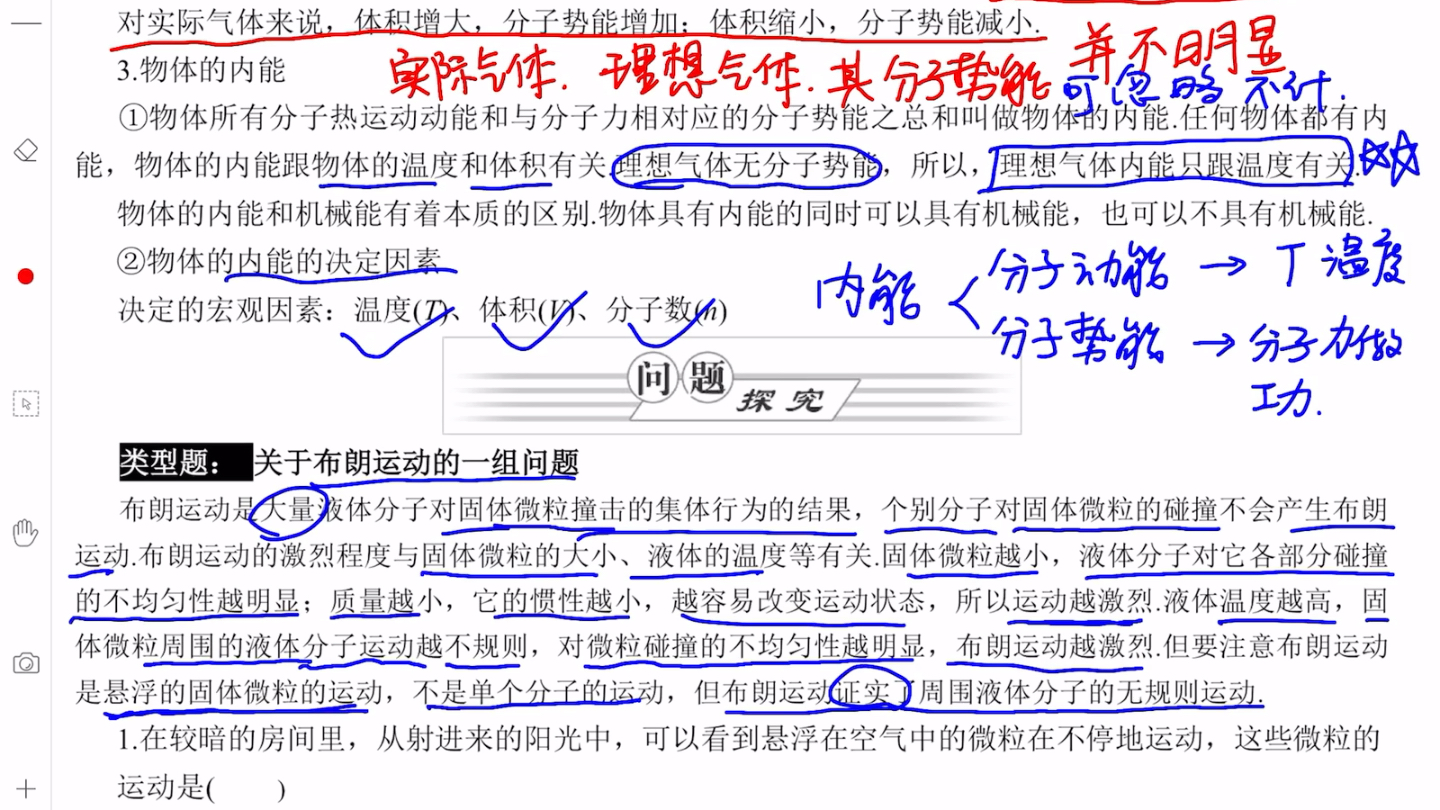 对实际气体来说，体积增大，分子势能增加；体积缩小，分子势能减小.
实际气体. 理想气体. 其分子势能 并不明显
可忽略不计.
3.物体的内能
①物体所有分子热运动动能和与分子力相对应的分子势能之总和叫做物体的内能.任何物体都有内
能，物体的内能跟物体的温度和体积有关.理想气体无分子势能，所以，理想气体内能只跟温度有关.
物体的内能和机械能有着本质的区别.物体具有内能的同时可以具有机械能，也可以不具有机械能.
②物体的内能的决定因素
决定的宏观因素：温度(T)、体积(V)、分子数(n)
内能
分子动能 → T 温度
分子势能 → 分子力做
功.
问题
探究
类型题： 关于布朗运动的一组问题
布朗运动是大量液体分子对固体微粒撞击的集体行为的结果，个别分子对固体微粒的碰撞不会产生布朗
运动.布朗运动的激烈程度与固体微粒的大小、液体的温度等有关.固体微粒越小，液体分子对它各部分碰撞
的不均匀性越明显；质量越小，它的惯性越小，越容易改变运动状态，所以运动越激烈.液体温度越高，固
体微粒周围的液体分子运动越不规则，对微粒碰撞的不均匀性越明显，布朗运动越激烈.但要注意布朗运动
是悬浮的固体微粒的运动，不是单个分子的运动，但布朗运动证实了周围液体分子的无规则运动.
1.在较暗的房间里，从射进来的阳光中，可以看到悬浮在空气中的微粒在不停地运动，这些微粒的
运动是( )